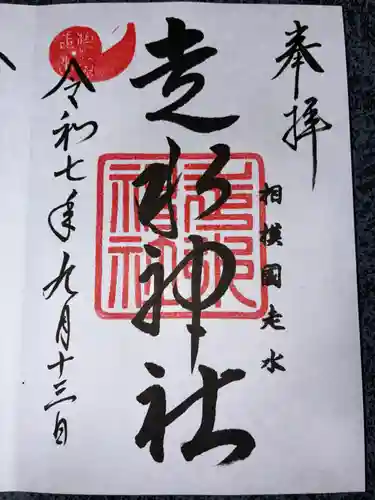 奉拝
相模國走水
走水神社
令和七年九月十三日
走水神社